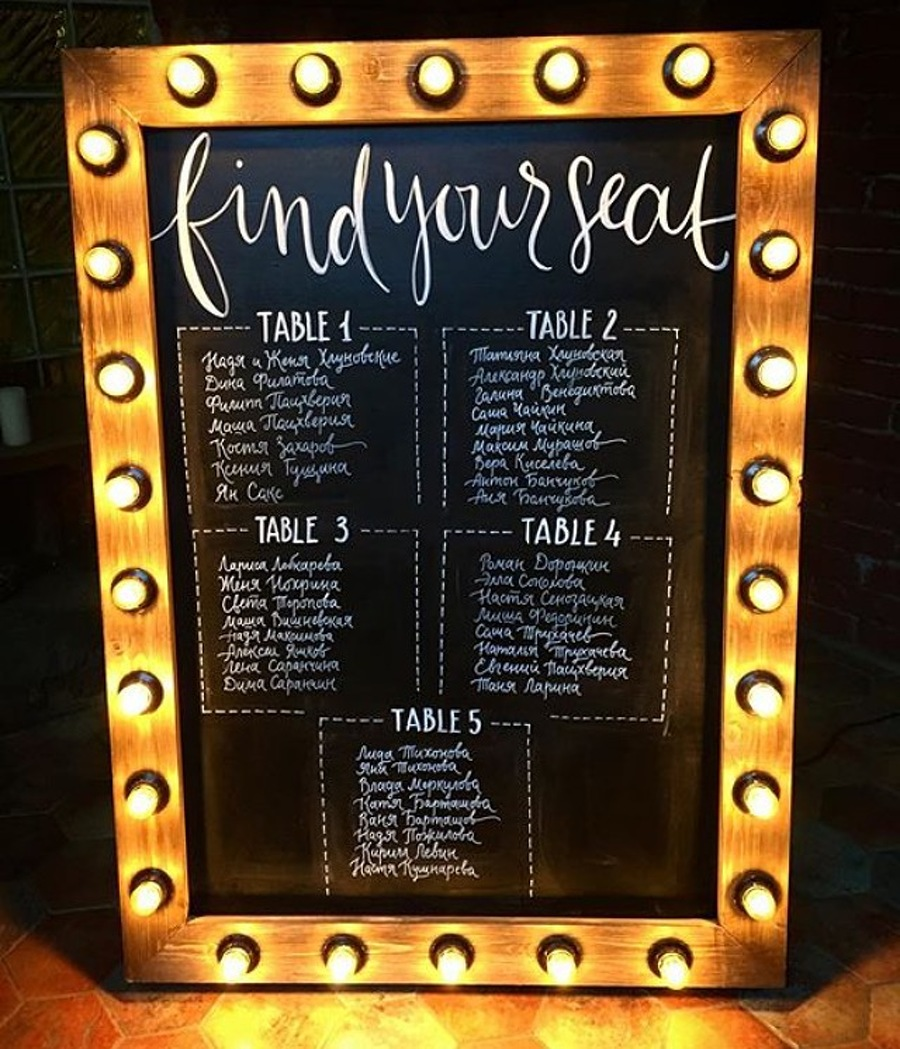 find your seat
TABLE 1
Надя и Женя Хлуновские
Дина Филатова
Филипп Пацхверия
Маша Пацхверия
Костя Захаров
Ксения Гущина
Ян Сакс
TABLE 2
Татьяна Хлуновская
Александр Хлуновский
Галина Венедиктова
Саша Чайкин
Мария Чайкина
Максим Мурашов
Вера Киселева
Антон Банчуков
Аня Банчукова
TABLE 3
Лариса
Женя Йохрина
Света Торопова
Маша Вишневская
Надя Максимова
Алексей Яшков
Лена Саранчина
Дима Саранчин
TABLE 4
Роман Доронкин
Элла Соколова
Настя Сеногацкая
Миша Федоринин
Саша Трухачев
Наталья Трухачева
Евгений Пацхверия
Таня Ларина
TABLE 5
Лида Тихонова
Яна Тихонова
Влада Меркулова
Катя Барташова
Ваня Барташов
Надя Пожилова
Кирилл Левин
Настя Кушнарева